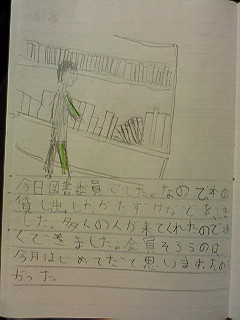 今日図書委員でした。なので本の
貸し出しやかたずけなどをしま
した。多くの人が来てくれたので
んできました。全員そろうのは、
今月はじめてだと思います。た
かった。